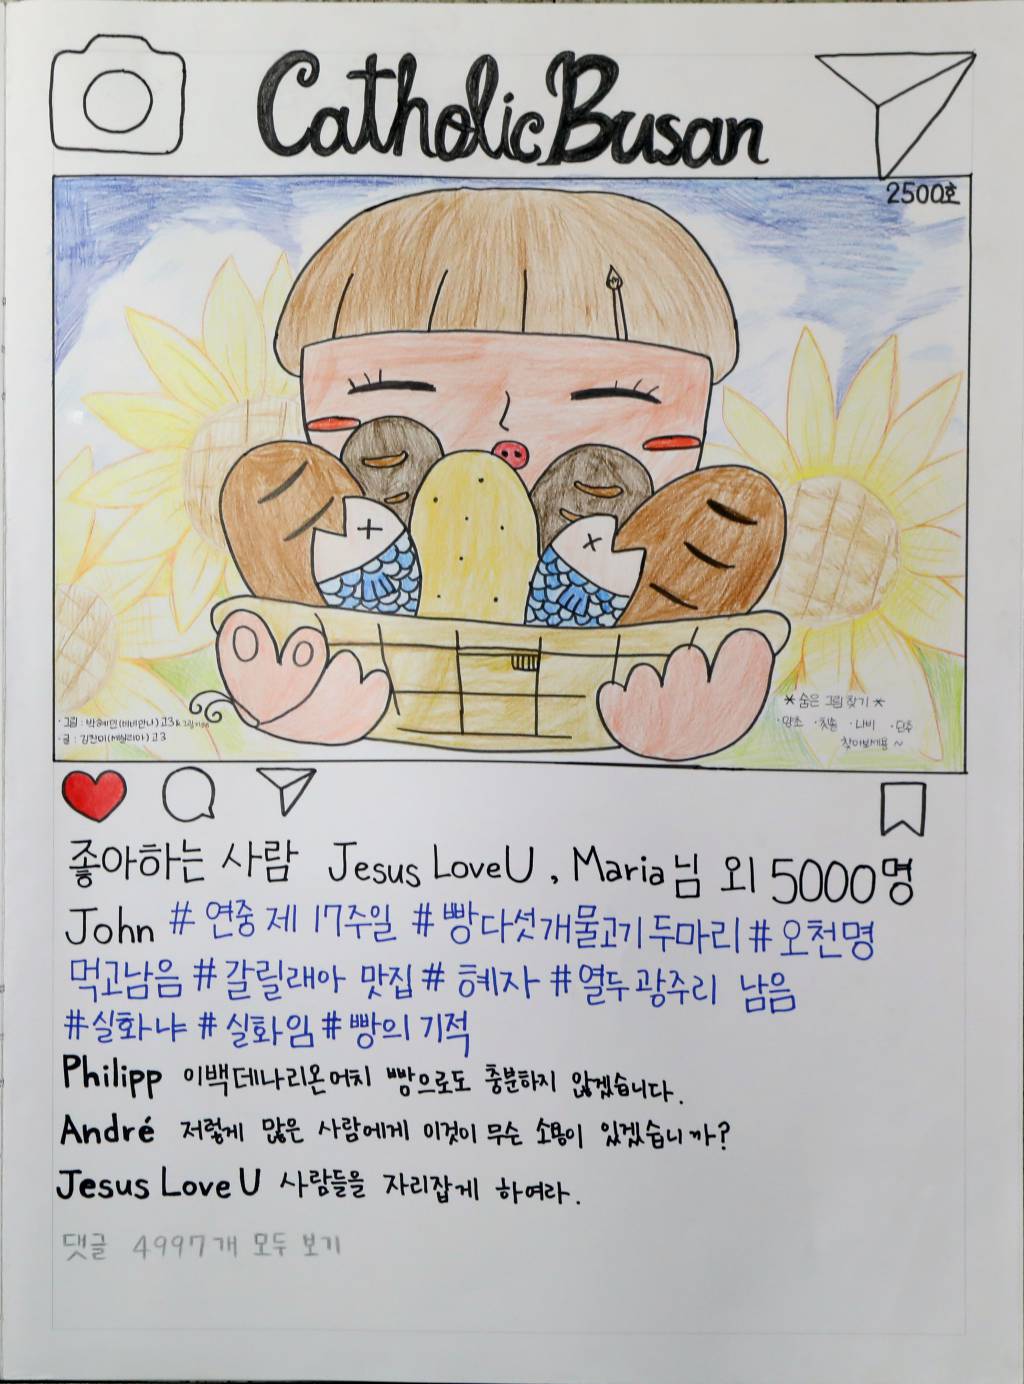 Catholic Busan
2500호
* 숨은 그림찾기 *
· 양초 · 칫솔 · 나비 · 단추
찾아보세용 ~
· 글 : 김진미(세실리아) 고3
좋아하는 사람 Jesus Love U , Maria님 외 5000명
John # 연중 제 17주일 # 빵다섯개물고기두마리 # 오천명
먹고남음 # 갈릴래아 맛집 # 혜자 # 열두 광주리 남음
#실화냐 # 실화임 # 빵의 기적
Philipp 이백데나리온어치 빵으로도 충분하지 않겠습니다.
André 저렇게 많은 사람에게 이것이 무슨 소용이 있겠습니까?
Jesus Love U 사람들을 자리잡게 하여라.
댓글 4997개 모두 보기